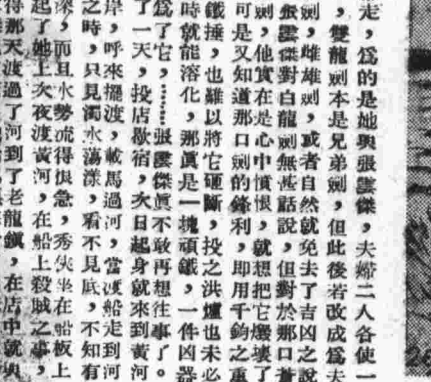 走，爲的是她與張雲傑，夫婦二人各使一
，雙龍劍本是兄弟劍，但此後若改成爲夫
劍，雌雄劍，或者自然就免去了吉凶之說
張雲傑對白龍劍無甚話說，但對於那口蒼
劍，他實在是心中憤恨，就想把它燬壞了
可是又知道那口劍的鋒利，即用千鈞之重
鐵捶，也難以將它砸斷，投之洪爐也未必
時就能溶化，那眞是一塊頑鐵，一件凶器
了它，……張雲傑眞不敢再想往事了。
了一天，投店歇宿，次日起身就來到黃河
岸，呼來擺渡，載馬過河，當渡船走到河
之時，只見濁水蕩漾，看不見底，不知有
深，而且水勢流得很急，秀俠坐在船板上
起了她上次夜渡黃河，在船上殺賊之事，
得那天渡過了河到了老龍鎮，在店中就
26